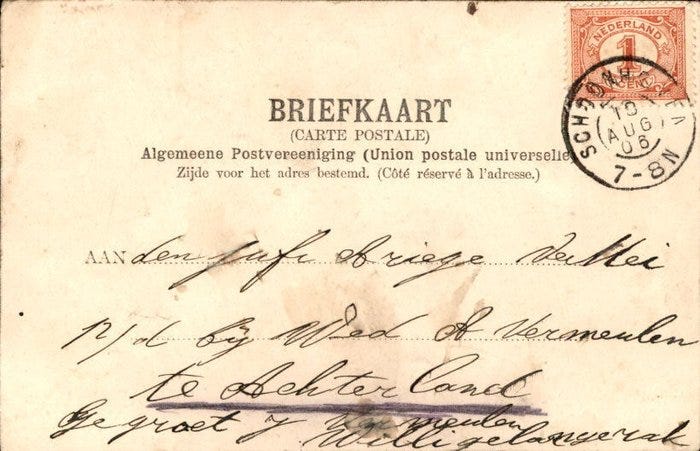 NEDERLAND
1
CENT
SCHOONHOVEN
10
AUG
06
7-8N
BRIEFKAART
(CARTE POSTALE)
Algemeene Postvereeniging (Union postale universelle)
Zijde voor het adres bestemd. (Côté réservé à l'adresse.)
AAN den jufr Ariege
p/d bij Wed A Vermeulen
te Achterland
Gegroet J Vermeulen
Willigelangerak